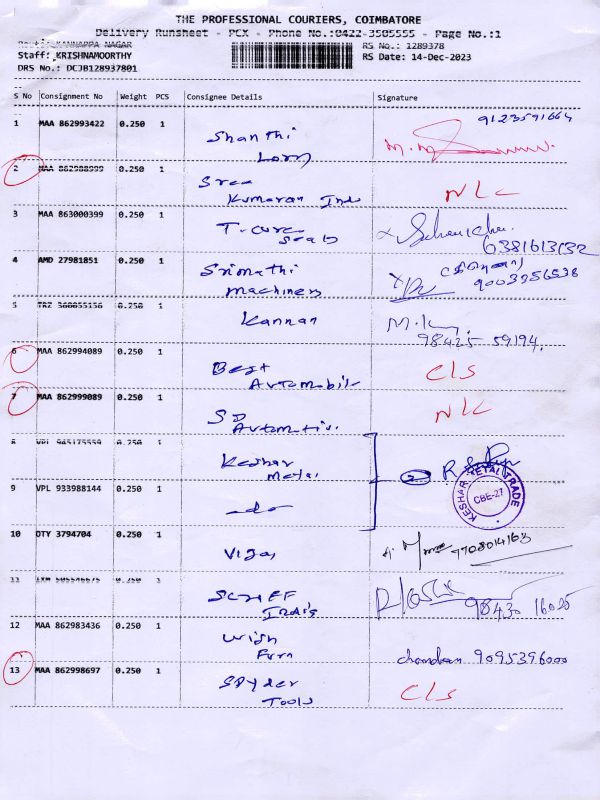 THE PROFESSIONAL COURIERS, COIMBATORE
Delivery Runsheet - PCX - Phone No.:0422-3505555 - Page No.:1
KANNAPPA NAGAR RS No.: 1289378
Staff: KRISHNAMOORTHY RS Date: 14-Dec-2023
DRS No.: DCJB128937801
S No Consignment No Weight PCS Consignee Details Signature
1 MAA 862993422 0.250 1 Shanthi 9123591664
2 MAA 862988999 0.250 1 Sree NLC
Kumaran Ind
3 MAA 863000399 0.250 1 T-cure
6381613132
4 AMD 27981851 0.250 1 Srimathi
Machiners 9003356538
5 0.250 1 Kannan
98425 59194.
6 MAA 862994089 0.250 1 Best CLS
Automobile
7 MAA 862999089 0.250 1 SD NLC
Automotiv.
8 0.250 1 Keshar
Metal 2
KESHAR METAL TRADE
CBE-27
9 VPL 933988144 0.250 1 do
10 DTY 3794704 0.250 1 Vijay 7708014163
11 0.250
98430 16025
12 MAA 862983436 0.250 1 Wish
Furn chandran 9095396000
13 MAA 862998697 0.250 1 Spyder CLS
Tools